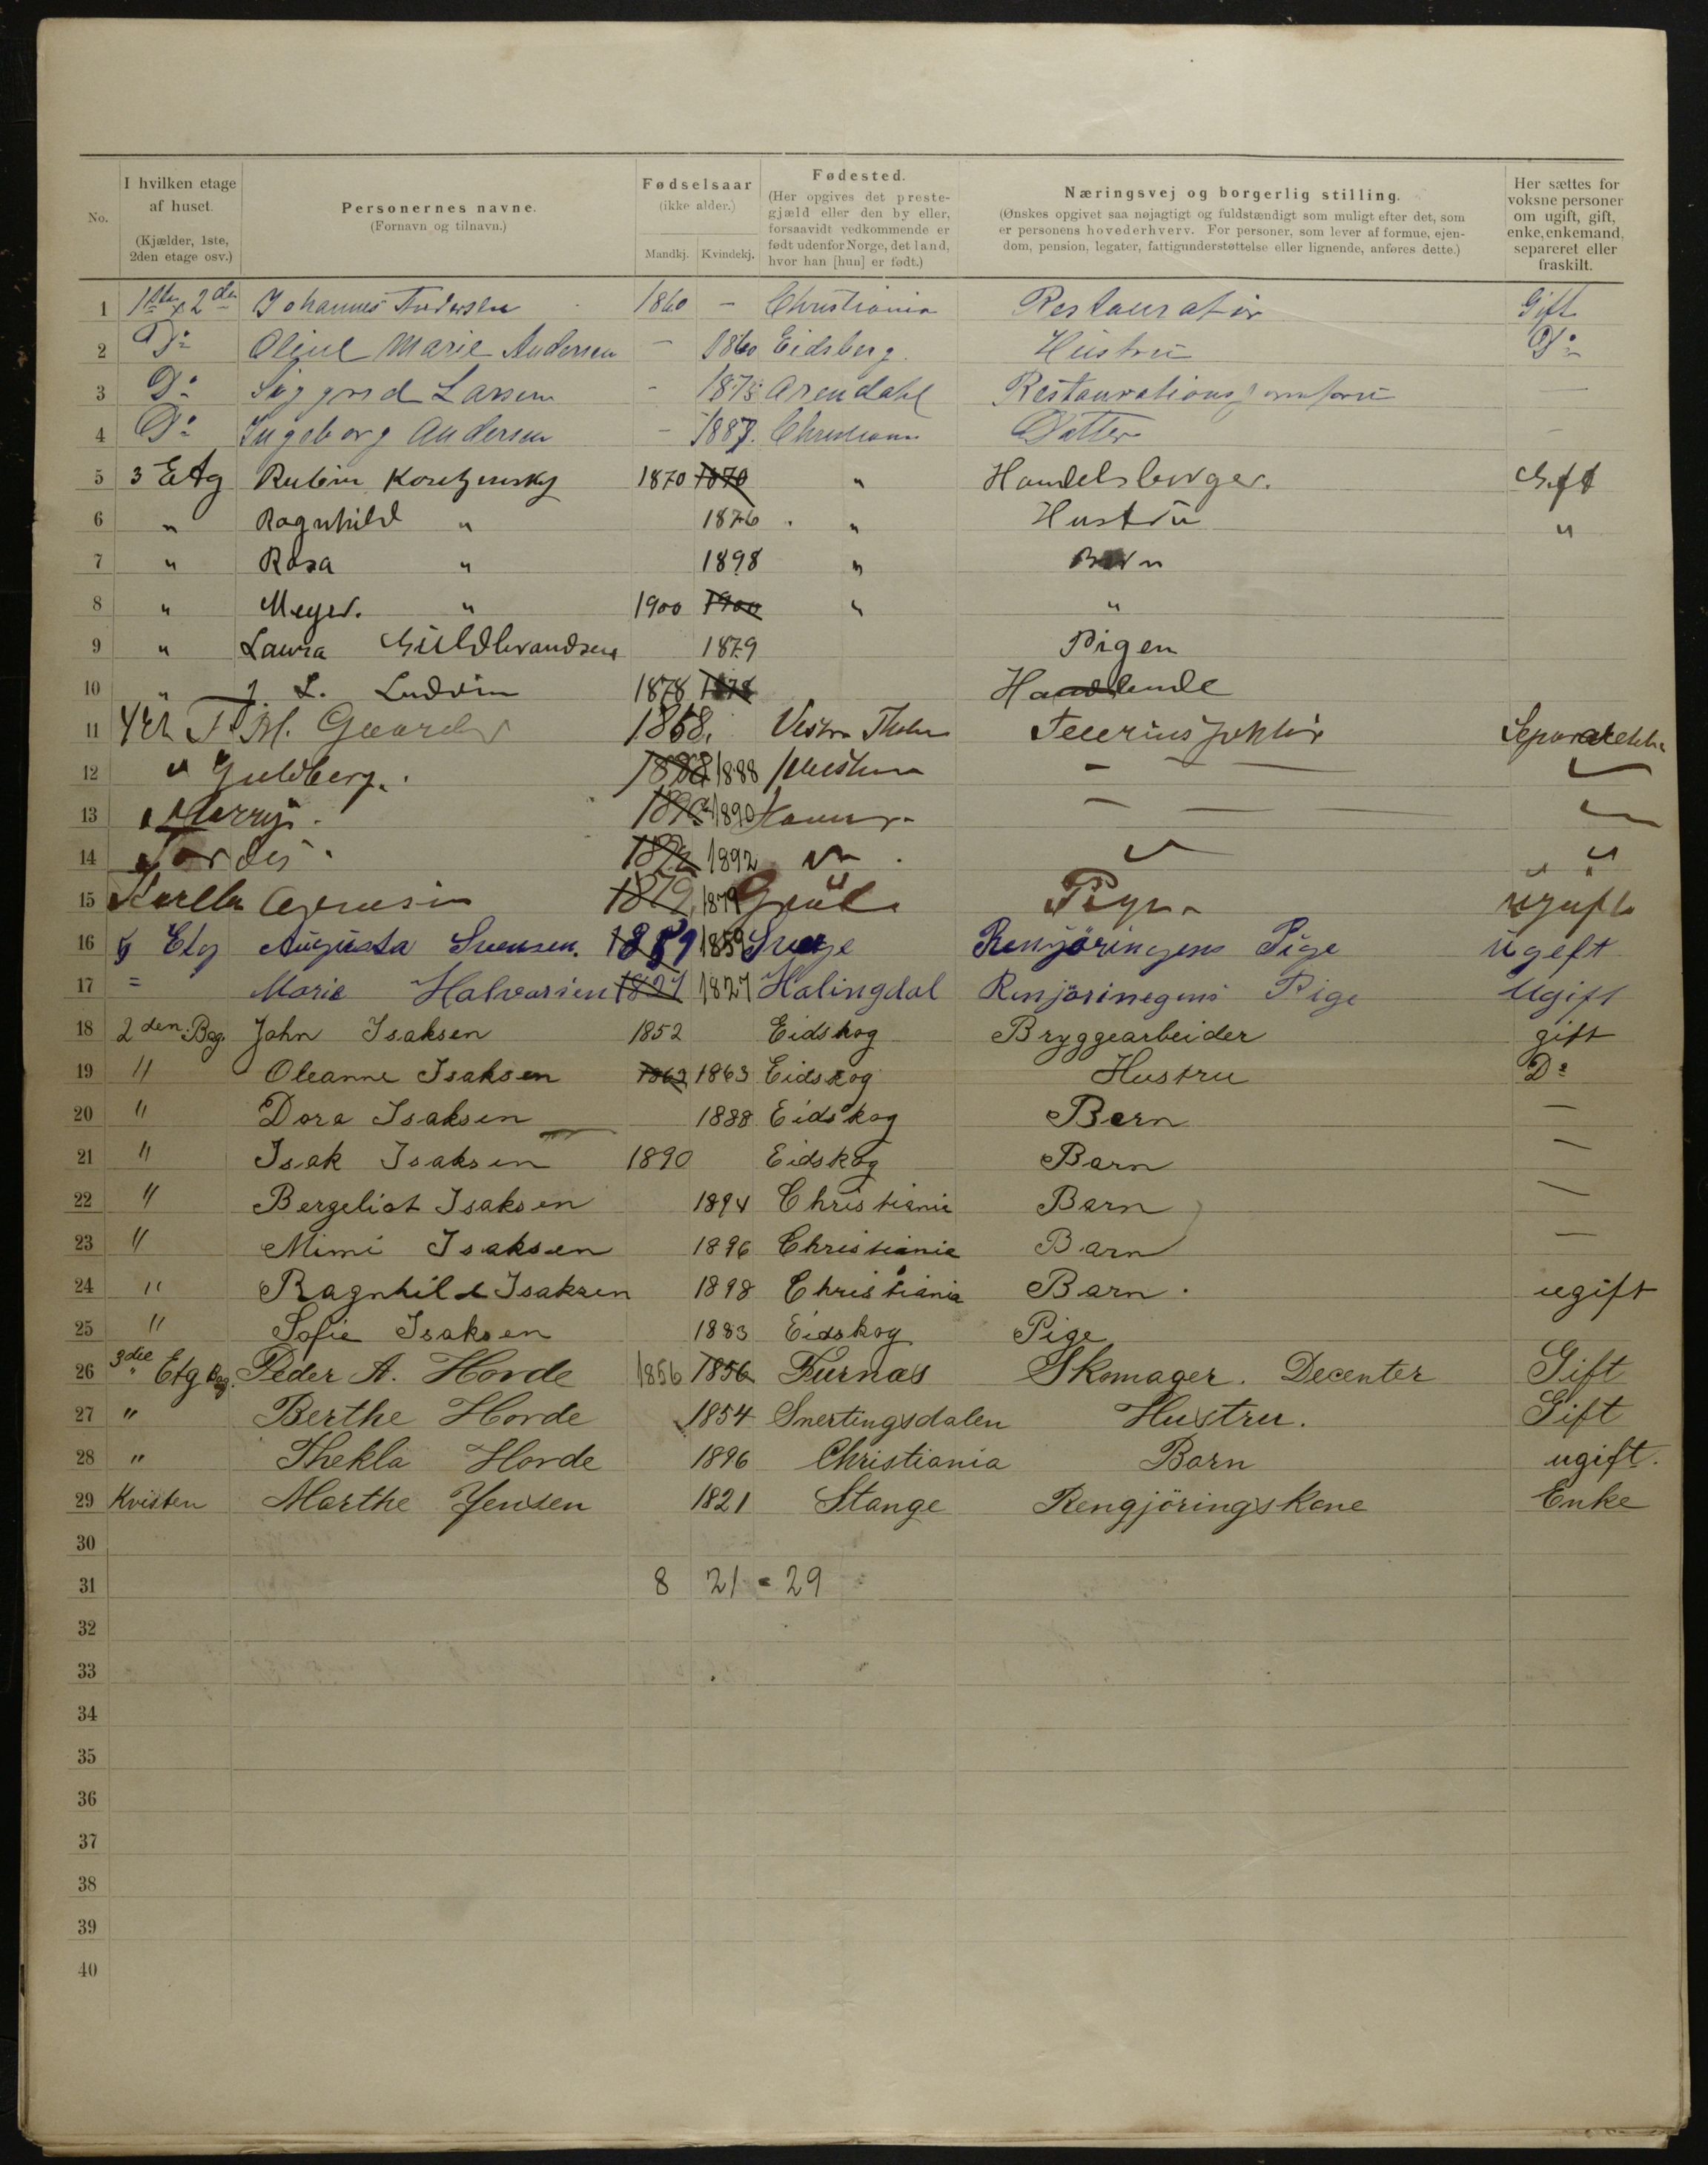 No.
I hvilken etage
af huset.
(Kjælder, 1ste,
2den etage osv.)
Personernes navne.
(Fornavn og tilnavn.)
Fødselsaar
(ikke alder.)
Mandkj. Kvindekj.
Fødested.
(Her opgives det preste-
gjæld eller den by eller,
forsaavidt vedkommende er
født udenfor Norge, det land,
hvor han [hun] er født.)
Næringsvej og borgerlig stilling.
(Ønskes opgivet saa nøjagtigt og fuldstændigt som muligt efter det, som
er personens hovederhverv. For personer, som lever af formue, ejen-
dom, pension, legater, fattigunderstøttelse eller lignende, anføres dette.)
Her sættes for
voksne personer
om ugift, gift,
enke, enkemand,
separeret eller
fraskilt.
1 1ste & 2den Johannes Andersen 1860 - Christiania Restauratør Gift
2 Do Oline Marie Andersen - 1860 Eidsberg. Hustru Do
3 Do Larsen - 1875 Arendahl —
4 Do Ingeborg Andersen - 1887. Christiania Datter -
5 3 Etg Rubin Koritzinsky 1870 1870 " Handelsborger. Gift
6 " Ragnhild " 1876 " Hustru "
7 " Rosa " 1898 " Barn
8 " Meyer. " 1900 1900 " "
9 " Laura Guldbrandsen 1879 Pigen
10 " J L. Ludvin 1878 1878 Handlende
11 1868. Vestre Separert
12 " Guldberg. 1888 1888 - - —
13 1890 1890 — — —
14 1892 1892 "
15 1879 1879 Pige ugift
16 5 Etg Augusta Svensen. 1859 1859 Sverge Renjøringens Pige ugift
17 = Marie Halvorsen 1827 1827 Halingdal Renjørinegens Pige Ugift
18 2den. Bag. John Isaksen 1852 Eidskog Bryggearbeider gift
19 " Oleanne Isaksen 1863 1863 Eidskog Hustru Do
20 " Dora Isaksen 1888 Eidskog Barn —
21 " Isak Isaksen 1890 Eidskog Barn —
22 " Bergeliot Isaksen 1894 Christiania Barn —
23 " Mimi Isaksen 1896 Christiania Barn —
24 " Ragnhild Isaksen 1898 Christiania Barn . ugift
25 " Sofie Isaksen 1883 Eidskog Pige
26 3die Etg Bag. Peder A. Horde 1856 1856 Furnæs Skomager. Decenter Gift
27 " Berthe Horde 1854 Snertingsdalen Hustru. Gift
28 " Thekla Horde 1896 Christiania Barn ugift.
29 Kvisten Marthe Jensen 1821 Stange Rengjøringskone Enke
30
31 8 21 = 29
32
33
34
35
36
37
38
39
40